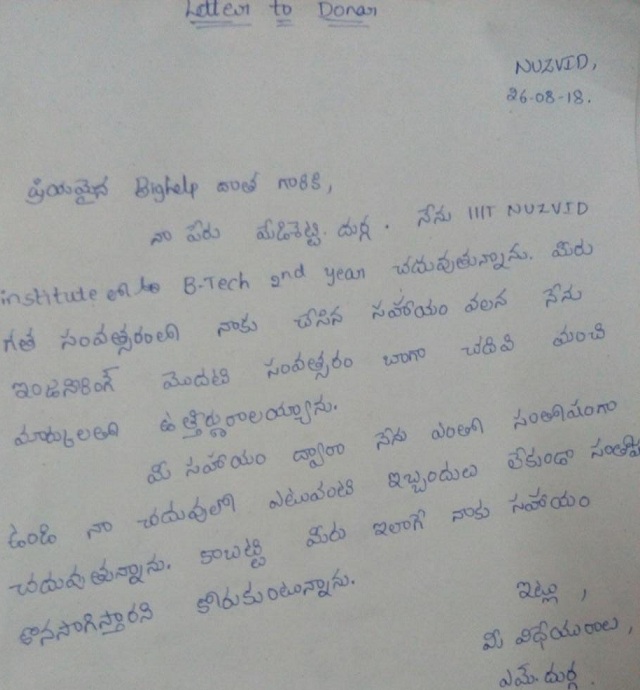 Letter to Donar
NUZVID,
26-08-18.
ప్రియమైన Bighelp దాత గారికి,
నా పేరు మేడిశెట్టి దుర్గ. నేను IIIT NUZVID
institute లో B-Tech 2nd year చదువుతున్నాను. మీరు
గత సంవత్సరంలో నాకు చేసిన సహాయం వలన నేను
ఇంజనీరింగ్ మొదటి సంవత్సరం బాగా చదివి మంచి
మార్కులతో ఉత్తీర్ణురాలయ్యాను.
మీ సహాయం ద్వారా నేను ఎంతో సంతోషంగా
ఉండి నా చదువులో ఎటువంటి ఇబ్బందులు లేకుండా
చదువుతున్నాను. కాబట్టి మీరు ఇలాగే నాకు సహాయం
కొనసాగిస్తారని కోరుకుంటున్నాను.
ఇట్లు,
మీ విధేయురాలు,
ఎమ్. దుర్గ.